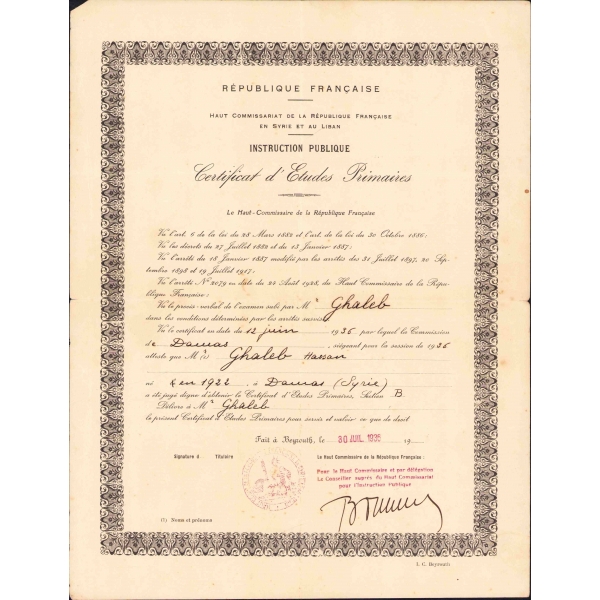 RÉPUBLIQUE FRANÇAISE
HAUT COMMISSARIAT DE LA RÉPUBLIQUE FRANÇAISE
EN SYRIE ET AU LIBAN
INSTRUCTION PUBLIQUE
Certificat d'Etudes Primaires
Le Haut-Commissaire de la République Française
Vu l'art. 6 de la loi du 28 Mars 1882 et l'art. de la loi du 30 Octobre 1886;
Vu les décrets du 27 Juillet 1882 et du 13 Janvier 1887;
Vu l'arrêté du 18 Janvier 1887 modifié par les arrêtés des 31 Juillet 1897, 20 Sep-
tembre 1898 et 19 Juillet 1917;
Vu l'arrêté N° 2079 en date du 24 Août 1928, du Haut Commissaire de la Répu-
blique Française;
Vu le procès-verbal de l'examen subi par M. Ghaleb
dans les conditions déterminées par les arrêtés susvisés
Vu le certificat en date du 12 juin 1935 par lequel la Commission
de Damas, siégeant pour la session de 1935
atteste que M. (1) Ghaleb Hassan
né en 1922 à Damas (Syrie)
a été jugé digne d'obtenir le Certificat d'Etudes Primaires, Section B.
Délivre à M. Ghaleb
le présent Certificat d'Etudes Primaires pour servir et valoir ce que de droit
Fait à Beyrouth, le 30 JUIL. 1935 19
Signature du Titulaire
Le Haut Commissaire de la République Française:
Pour le Haut Commissaire et par délégation
Le Conseiller auprès du Haut Commissariat
pour l'Instruction Publique
(1) Noms et prénoms
I. C. Beyrouth